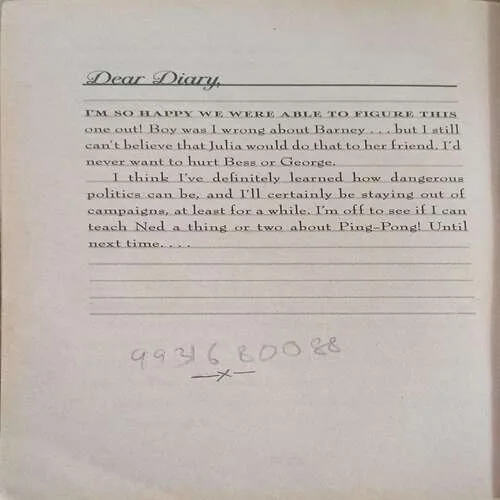 Dear Diary,
I'M SO HAPPY WE WERE ABLE TO FIGURE THIS
one out! Boy was I wrong about Barney . . . but I still
can't believe that Julia would do that to her friend. I'd
never want to hurt Bess or George.
I think I've definitely learned how dangerous
politics can be, and I'll certainly be staying out of
campaigns, at least for a while. I'm off to see if I can
teach Ned a thing or two about Ping-Pong! Until
next time. . . .